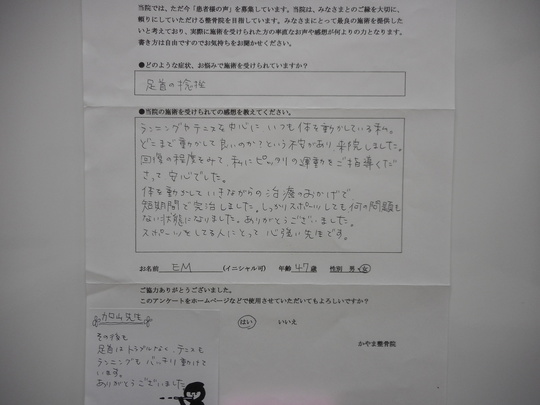 当院では、ただ今「患者様の声」を募集しています。当院は、みなさまとのご縁を大切に、
頼りにしていただける整骨院を目指しています。みなさまにとって最良の施術を提供した
いと考えており、実際に施術を受けられた方の率直なお声や感想が何よりの力となります。
書き方は自由ですのでお気持ちをお聞かせください。
●どのような症状、お悩みで施術を受けられていますか？
足首の捻挫
●当院の施術を受けられての感想を教えてください。
ランニングやテニスを中心に いつも体を動かしている私。
どこまで動かして良いのか？という不安があり 来院しました。
回復の程度をみて、私にピッタリの運動をご指導くだ
さって 安心でした。
体を動かしていきながらの治療のおかげで
短期間で完治しました。しっかりスポーツしても何の問題も
ない状態になりました。ありがとうございました。
スポーツをしてる人にとって 心強い先生です。
お名前 EM (イニシャル可) 年齢 47歳 性別 男・女
ご協力ありがとうございました。
このアンケートをホームページなどで使用させていただいてもよろしいですか？
はい いいえ
かやま整骨院
加山先生
その後も
足首はトラブルなく、テニスも
ランニングも バッチリ動けて
います。
ありがとうございました